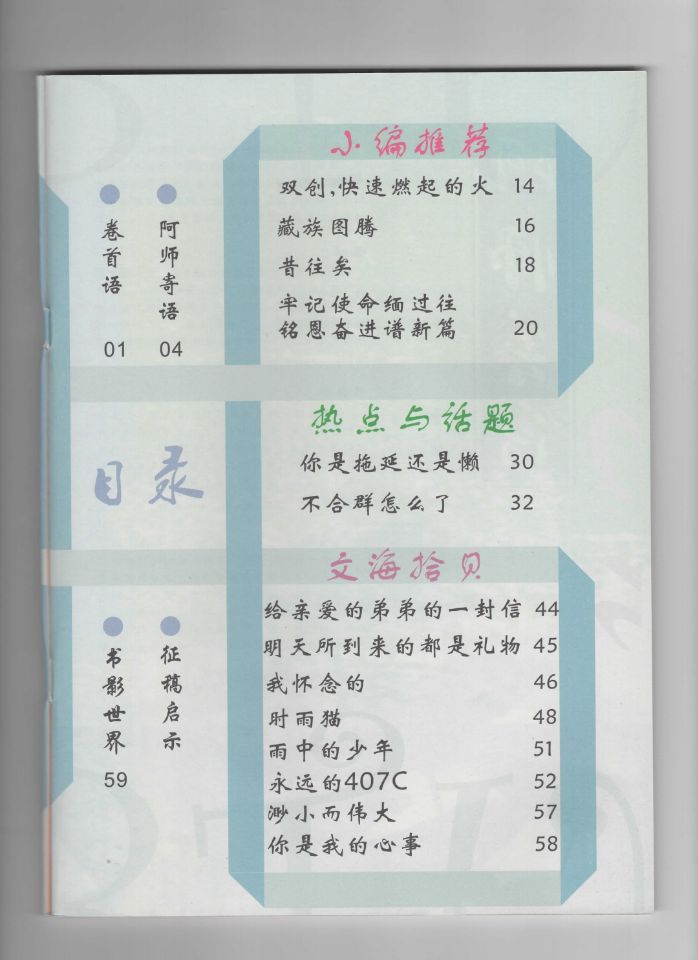 卷首语
01
阿师寄语
04
目录
书影世界
59
征稿启示
小编推荐
双创,快速燃起的火 14
藏族图腾 16
昔往矣 18
牢记使命缅过往
铭恩奋进谱新篇 20
热点与话题
你是拖延还是懒 30
不合群怎么了 32
文海拾贝
给亲爱的弟弟的一封信 44
明天所到来的都是礼物 45
我怀念的 46
时雨猫 48
雨中的少年 51
永远的407C 52
渺小而伟大 57
你是我的心事 58